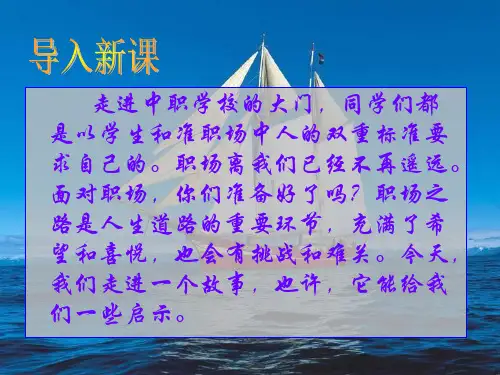 导入新课
走进中职学校的大门，同学们都
是以学生和准职场中人的双重标准要
求自己的。职场离我们已经不再遥远。
面对职场，你们准备好了吗？职场之
路是人生道路的重要环节，充满了希
望和喜悦，也会有挑战和难关。今天，
我们走进一个故事，也许，它能给我
们一些启示。